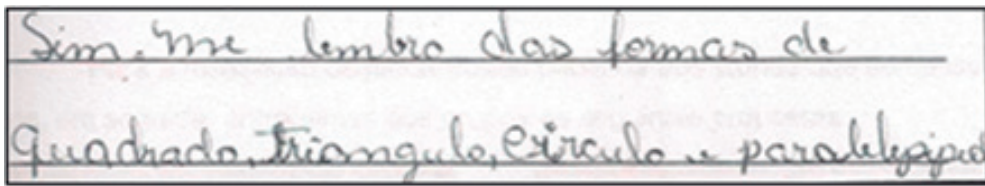 Sim, me lembro das formas de
Quadrado, triangulo, circulo e paralelepiped